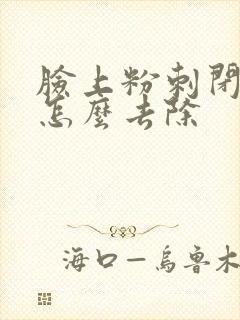 臉上粉刺閉
怎麼去除
海口—烏魯木